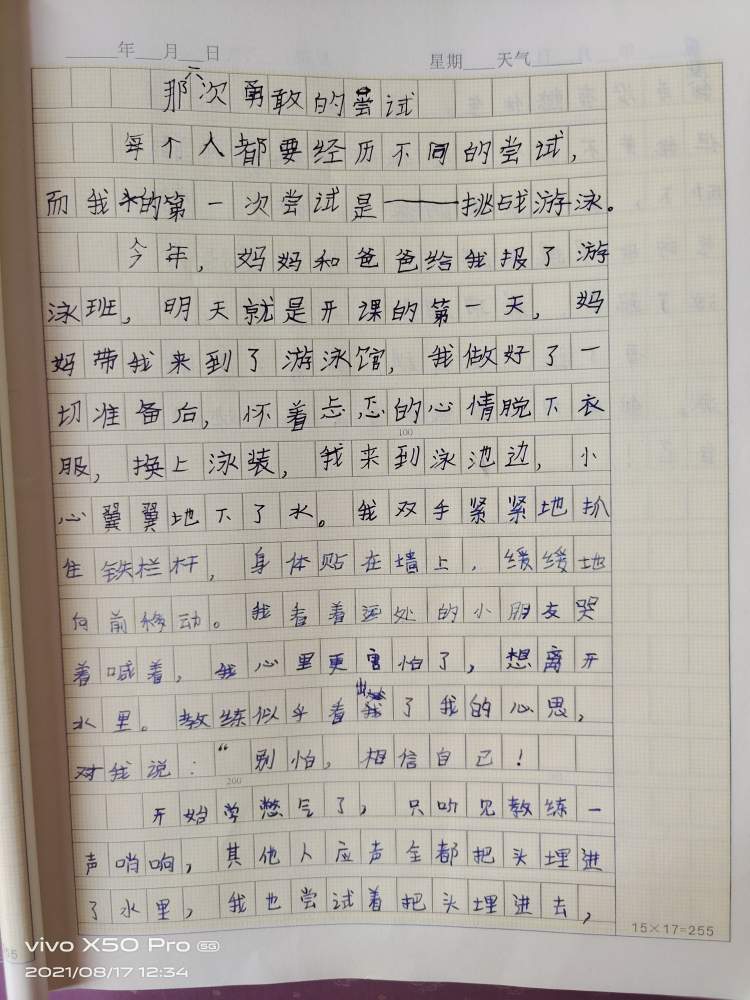 年 月 日 星期 天气
那一次勇敢的尝试
每个人都要经历不同的尝试，
而我的第一次尝试是——挑战游泳。
今年，妈妈和爸爸给我报了游
泳班，明天就是开课的第一天，妈
妈带我来到了游泳馆，我做好了一
切准备后，怀着忐忑的心情脱下衣
服，换上泳装，我来到泳池边，小
心翼翼地下了水。我双手紧紧地抓
100
住铁栏杆，身体贴在墙上，缓缓地
向前移动。我看着远处的小朋友哭
着喊着，我心里更害怕了，想离开
水里。教练似乎看出了我的心思，
对我说：“别怕，相信自己！
200
开始学憋气了，只听见教练一
声哨响，其他人应声全都把头埋进
了水里，我也尝试着把头埋进去，
15×17=255
vivo X50 Pro 5G
2021/08/17 12:34